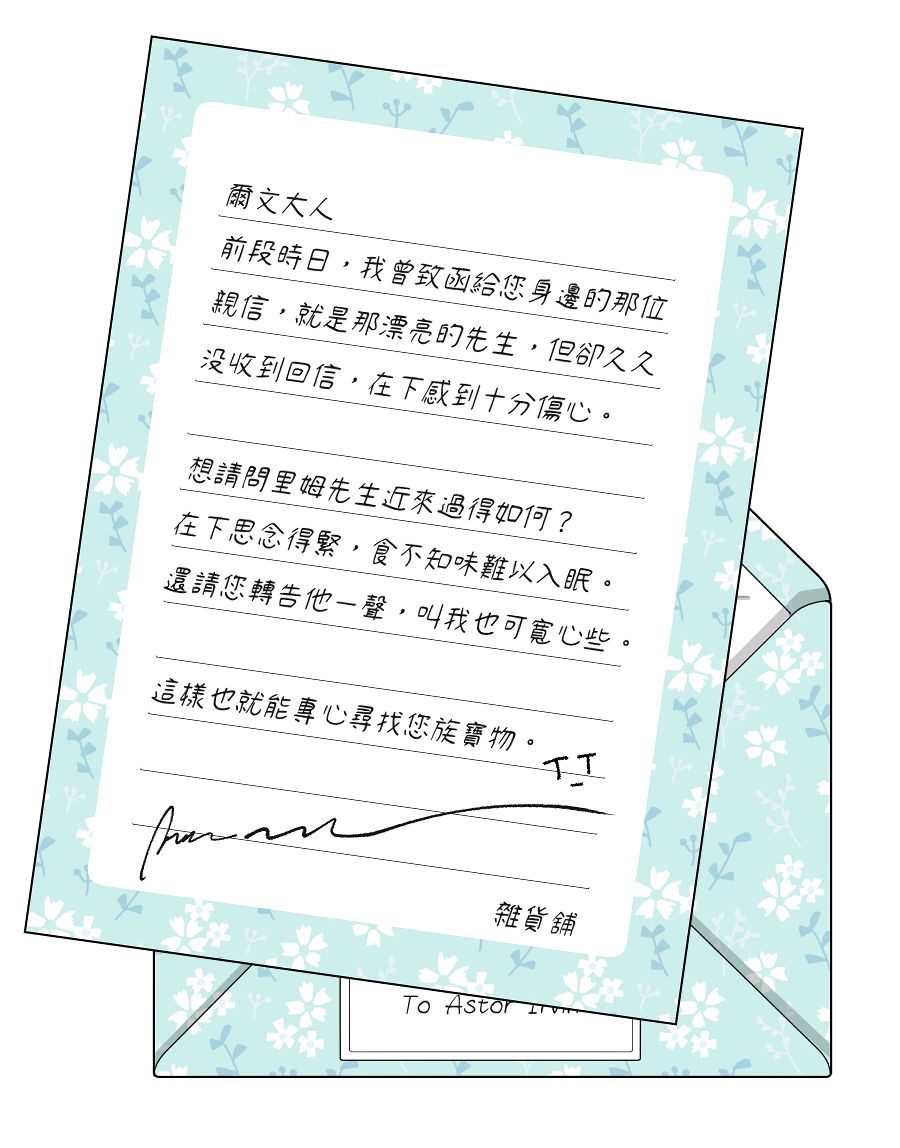 爾文大人
前段時日，我曾致函給您身邊的那位
親信，就是那漂亮的先生，但卻久久
沒收到回信，在下感到十分傷心。
想請問里姆先生近來過得如何？
在下思念得緊，食不知味難以入眠。
還請您轉告他一聲，叫我也可寬心些。
這樣也就能專心尋找您族寶物。
T_T
雜貨舖
To Astor